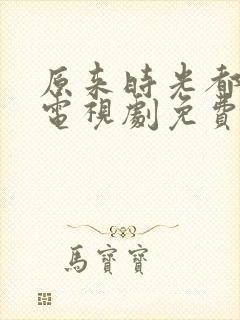 原来時光都
電視劇免費
馬寶寶